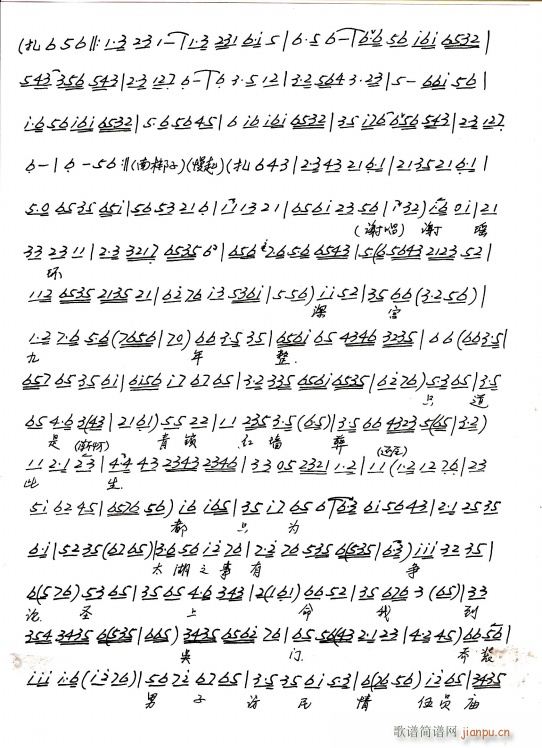 (扎 6 5 6 ‖: 1·3 2 3 1 — | 1·3 2 3 1 6 i 5 | 6·5 6 — | 6 6 5 6 i 6 i 6 5 3 2 |
5 4 3 3 5 6 5 4 3 | 2·3 1 2 7 6 — | 6 3·5 1 2 | 3·2 5 6 4 3·2 3 | 5 — 6 6 i 5 6 |
i·6 5 6 i 6 i 6 5 3 2 | 5·6 5 6 4 5 | 6 i 6 i 6 i 6 5 3 2 | 3 5 i 7 6 6 5 6 5 4 3 | 2·3 1 2 7
6 — | 6 — 5 6 :‖ (南梆子) (慢起) (扎 6 4 3 | 2·3 4 3 2 1 6·1 | 2 1 3 5 2 1 6·1 |
5·0 6 5 3 5 6 5 i | 5 6 5 3 2 1 6 | 1 1 1 3 2 1 | 6 5 6 i 2 3 5 6 | i 3 2) i·6 0 i | 2 1
(谢唱) 谢 瑶
3 3 2 3 1 1 | 2·3 3 2 1 7 6 5 3 5 6 | 6 5 6 i 7 6 5 6 6 5 4 3 | 5 (6 5 6 4 3 2 1 2 3 5 2 |
环
1 1 2 6 5 3 5 2 1 3 5 2 1 | 6 i 7 6 i 3 5 3 6 i | 5·5 6) i i 5 2 | 3 5 6 6 (3·2 5 6) |
深 宫
1·2 7·6 5·6 (7 6 5 6 | 7 0) 6 6 3·5 3 5 | 6 5 6 i 6 5 4 3 4 6 3 2 3 5 | 6 6 (6 6 3·5 |
九 年 整.
6 5 7 6 5 3 5 6 i | 6 i 5 6 i 7 6 7 6 5 | 3·2 3 3 5 6 5 6 i 6 5 3 5 | 6 i 7 6) 5·3 6 5 | 3·5
只 道
6 5 4·6 3 (4 3 | 2 1 6 1) 5 5 2 2 | 1 1 2 3 5 3·5 (6 5) | 3·5 6 6 4 3 2 3 5 (6 5 | 3·2)
是 青 锁 红 墙 葬
1 1 2·1 2 3 | 4·4 4 3 2 3 4 3 2 3 4 6 | 3 3 0 5 2 3 2 1 1·2 | 1 1 (1·2 1 2 7 6 | 2 3
此 生.
5 i 6 2 4 5 | 6 5 7 6 5 6) i 6 i 6 5 | 3 5 i 7 6 5 6 | 6·3 6 i 5 6 4 3 | 2·1 2 5 3 5
都 只 为
6 i | 5 2 3 5 (6 7 6 5) | 3·6 5 6 i 2 7 6 | 7·2 7 6 5 3 5 6 (5 3 5 | 6·3) i i i 3 2 3 5 |
太 湖 之 事 有 争
6 (5 7 6) 5 3 6 5 | 3 5 6 5 4·6 3 4 3 | 2 (1 6 1) 6 6 5 2 | 3 5 6 7 6 3 (6 5) | 3 3
论. 圣 上 命 我 到
3 5 4 3 4 3 5 6 (5 3 5 | 6 6 5) 3 4 3 5 6 5 6 i 7 6 | 6 5 5 6 (4 3 2·1 2 3 | 4·2 4 5) 6 6 5 6 |
吴 门. 乔 装
i i i i·6 (i 2 7 6) | 5 6 7 i 6 7 6 5 | 3·5 3 5 6 i 5·3 | 6 (7 6 5 6) i 3 6 5 | 3 4 3 5
男 子 访 民 情 伍 员 庙
歌谱简谱网 jianpu.cn